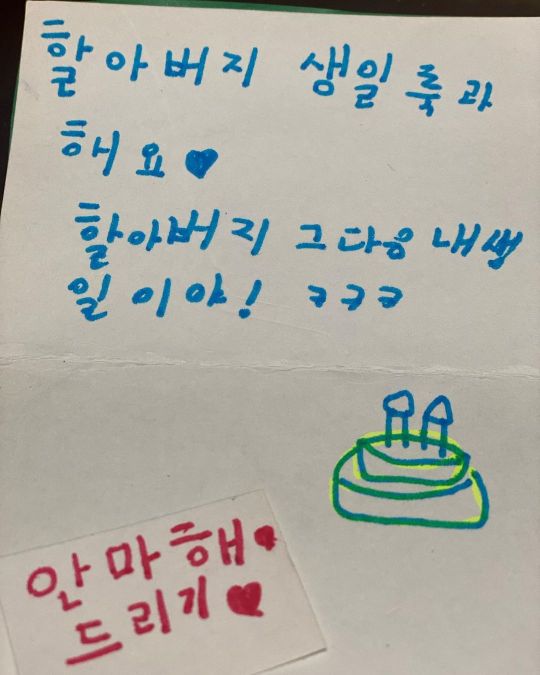 할아버지 생일 룩과
해요♥
할아버지 그다음 내생
일이야! ㅋㅋㅋ
안마해♥
드리기♥